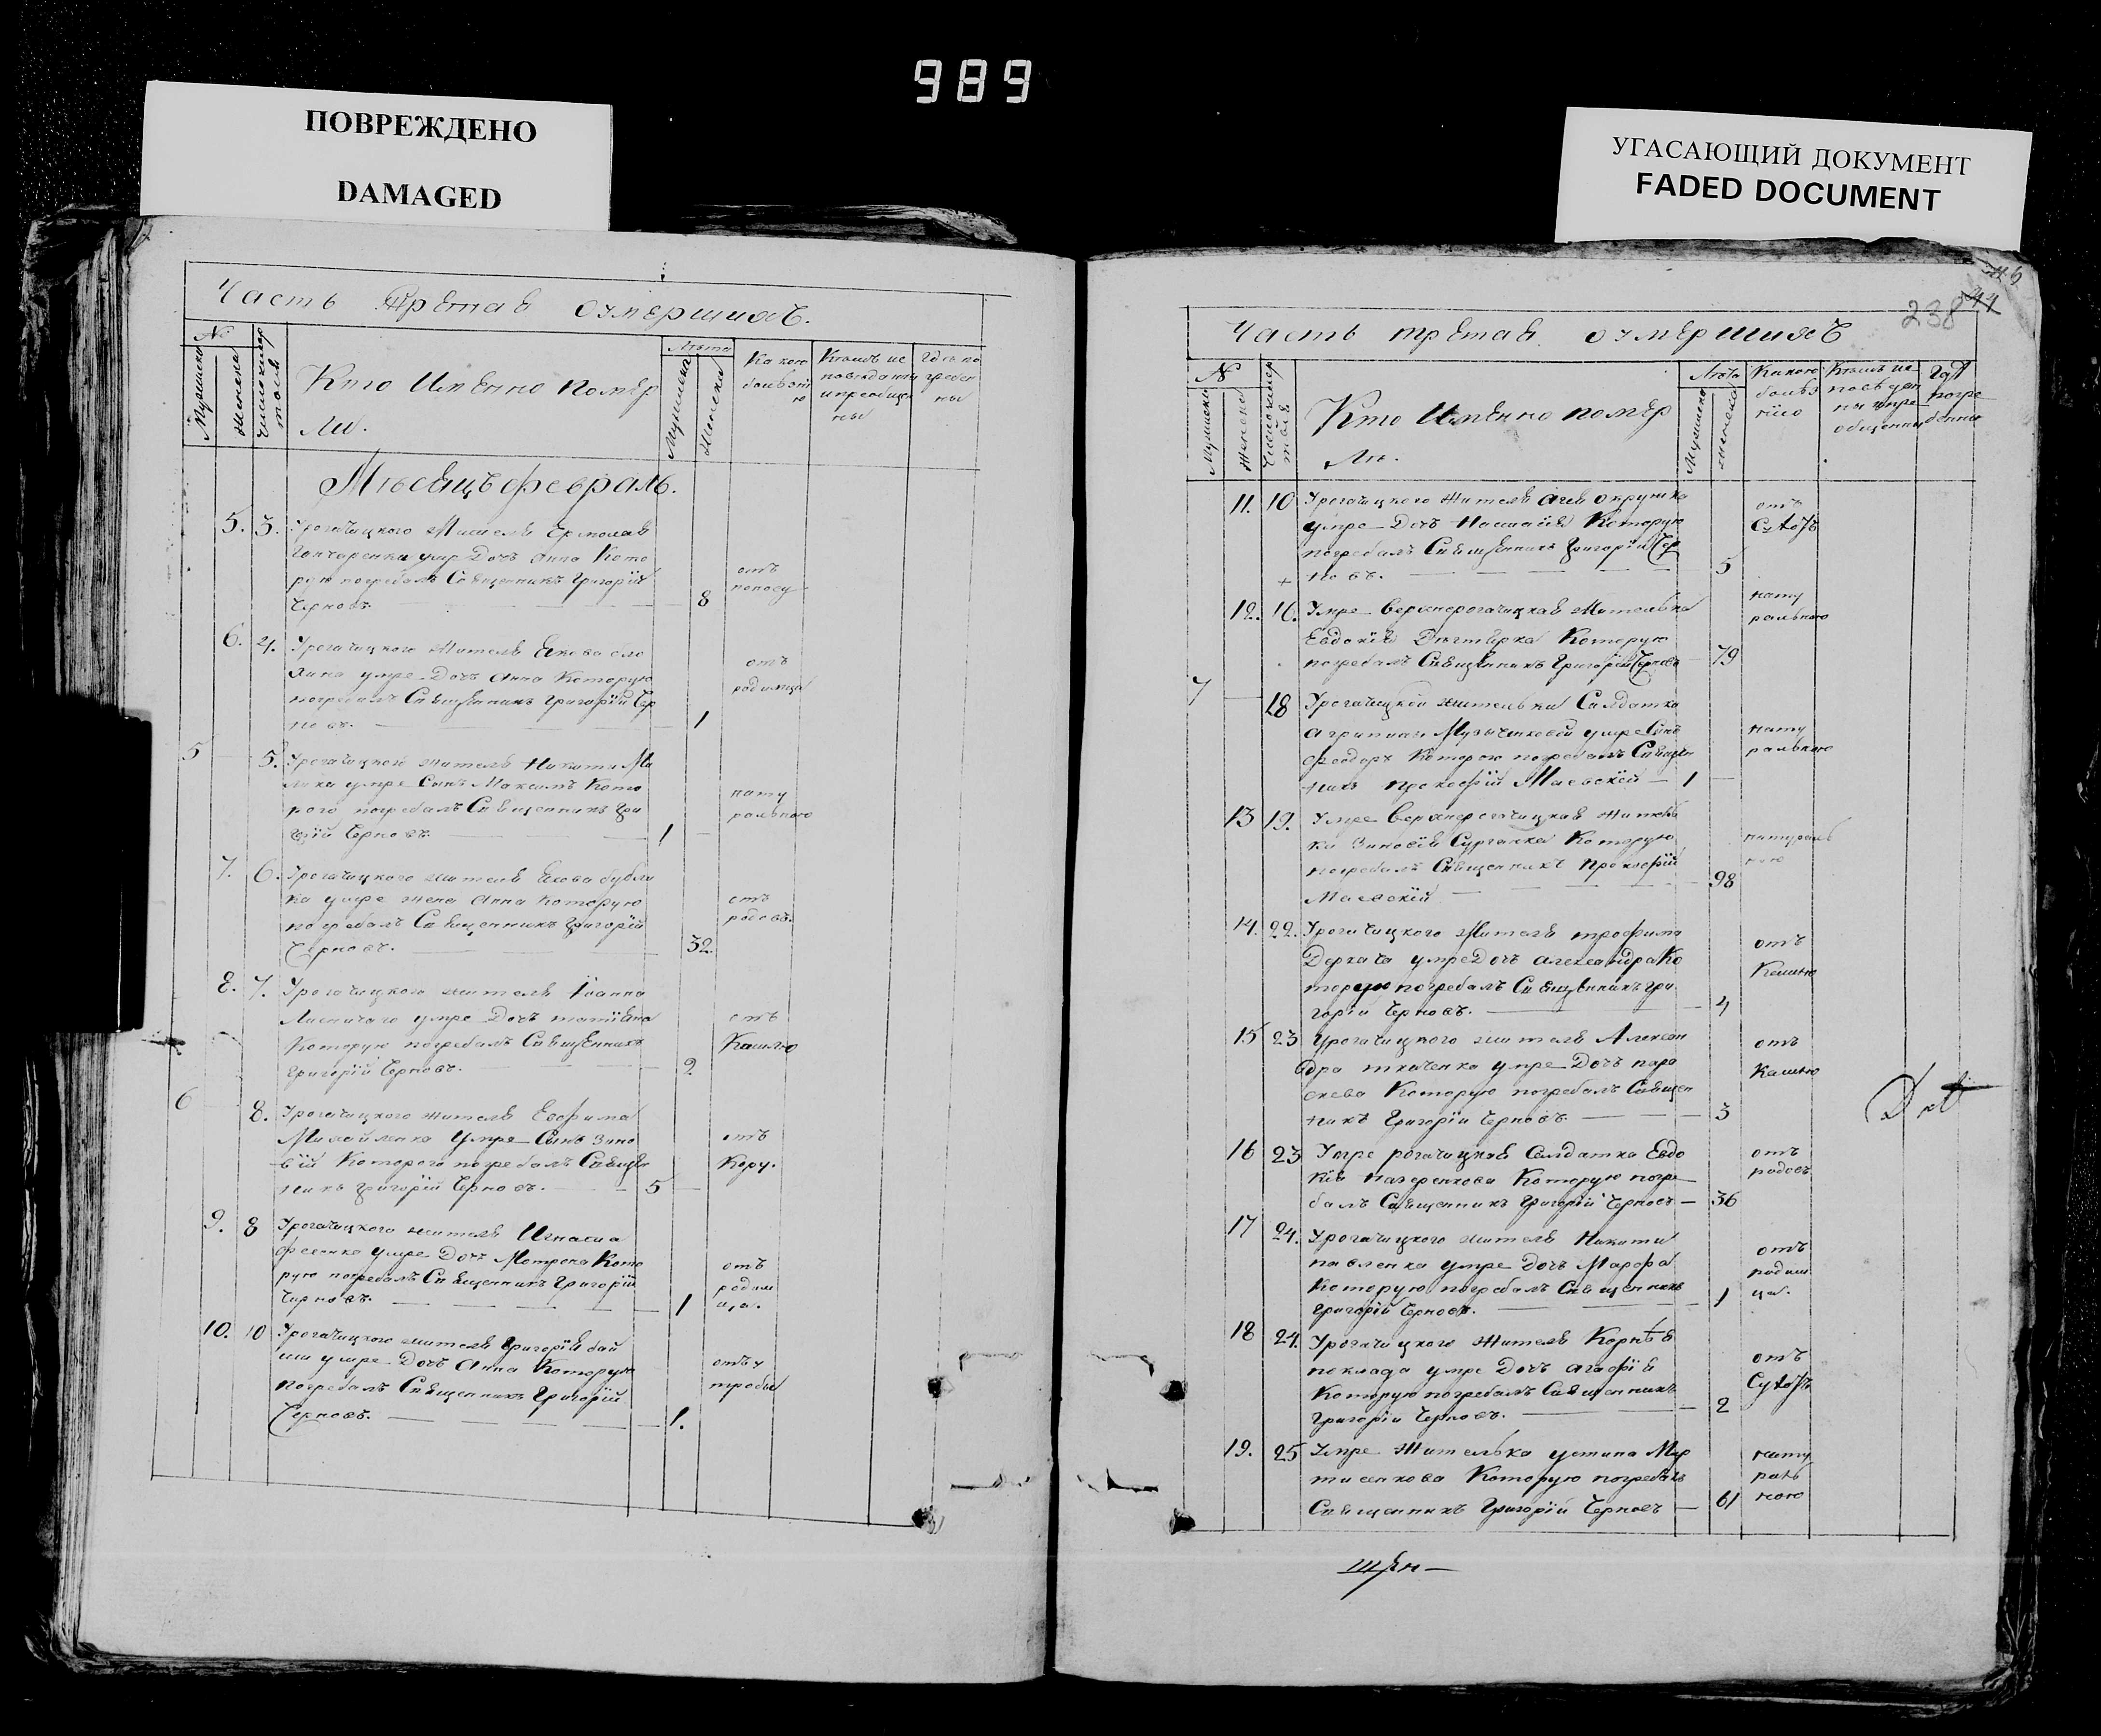 989
ПОВРЕЖДЕНО
DAMAGED
УГАСАЮЩИЙ ДОКУМЕНТ
FADED DOCUMENT
Часть третая о умершихъ.
№
Лета
Мужеска
Женска
Число и мер
Кто Именно помер
ли.
Мужеска
Женска
Какою
Кѣмъ ис
поведаны
и преобще
ны
Где по
гребен
ны
Мѣсяцъ февраль.
5. 3. У рогачицкого Жителя Ермолая
Гончаренка умре Дочь Анна Кото
рую погребалъ Священникъ Григорій
Черновъ. 8
отъ
поносу
6. 4. У рогачицкого Жителя Якова
умре Дочь Анна Которую
погребалъ Священникъ Григорій Чер
новъ. 1
отъ
родимца
5 5. У рогачицкого жителя Никити
умре Сынъ Максимъ Кото
рого погребалъ Священникъ Гри
горій Черновъ. 1
нату
ральною
7. 6. У рогачицкого жителя Якова
ка умре жена Анна Которую
погребалъ Священникъ Григорій
Черновъ. 32.
отъ
родовъ.
8. 7. У рогачицкого жителя Іоанна
умре Дочь татіяна
Которую погребалъ Священникъ
Григорій Черновъ. 2
отъ
Кашлю
6 8. У рогачицкого жителя Евфима
Михайленка Умре Сынъ Зино
вій Которого погребалъ Священ
никъ Григорій Черновъ. 5
отъ
Кору.
9. 8 У рогачицкого жителя Игнатия
умре Дочь Мотрона Кото
рую погребалъ Священникъ Григорій
Черновъ. 1
отъ
родим
ца.
10. 10 У рогачицкого жителя Григорія бай
умре Дочь Анна Которую
погребалъ Священникъ Григорій
Черновъ. 1.
отъ у
тробы
238
Часть третая о умершихъ
№
Лета
Мужеска
Женска
Кто Именно помер
ли.
Мужеска
Женска
Какою
болез
нию
Кѣмъ ис
поведан
ны и пре
общенны
Где
погре
бенны
11. 10 У рогачицкого жителя
умре Дочь Которую
погребалъ Священникъ Григорій Чер
новъ. 5
отъ
12. 16. Умре верхнерогачицкая Жителька
Евдокія Которую
погребалъ Священникъ Григорій Черновъ 79
нату
ральною
7 18 У рогачицкой жительки Салдатки
Агрипини умре Сынъ
Феодоръ Которого погребалъ Священ
никъ Прокофій Маевскій 1
нату
ральною
13 19. Умре верхнерогачицкая жител
ка Зиновія Которую
погребалъ Священникъ Прокофій
Маевскій 98
натураль
ною
14. 22. У рогачицкого Жителя трофима
Деркача умре Дочь Александра Ко
торую погребалъ Священникъ Гри
горій Черновъ. 4
отъ
Кашлю
15 23 У рогачицкого жителя Алексан
дра ткаченка умре Дочь пара
скева Которую погребалъ Священ
никъ Григорій Черновъ. 3
отъ
Кашлю
16 23 Умре рогачицкая Салдатка Евдо
кія Которую погре
балъ Священникъ Григорій Черновъ 36
отъ
родовъ
17 24. У рогачицкого жителя Никити
павленка умре Дочь Марфа
Которую погребалъ Священникъ
Григорій Черновъ. 1
отъ
родим
ца.
18 24. У рогачицкого Жителя Корнѣя
поклада умре Дочь Агафія
Которую погребалъ Священникъ
Григорій Черновъ. 2
отъ
19. 25 Умре Жителька устина Мар
тисенкова Которую погребалъ
Священникъ Григорій Черновъ 61
нату
раль
ною